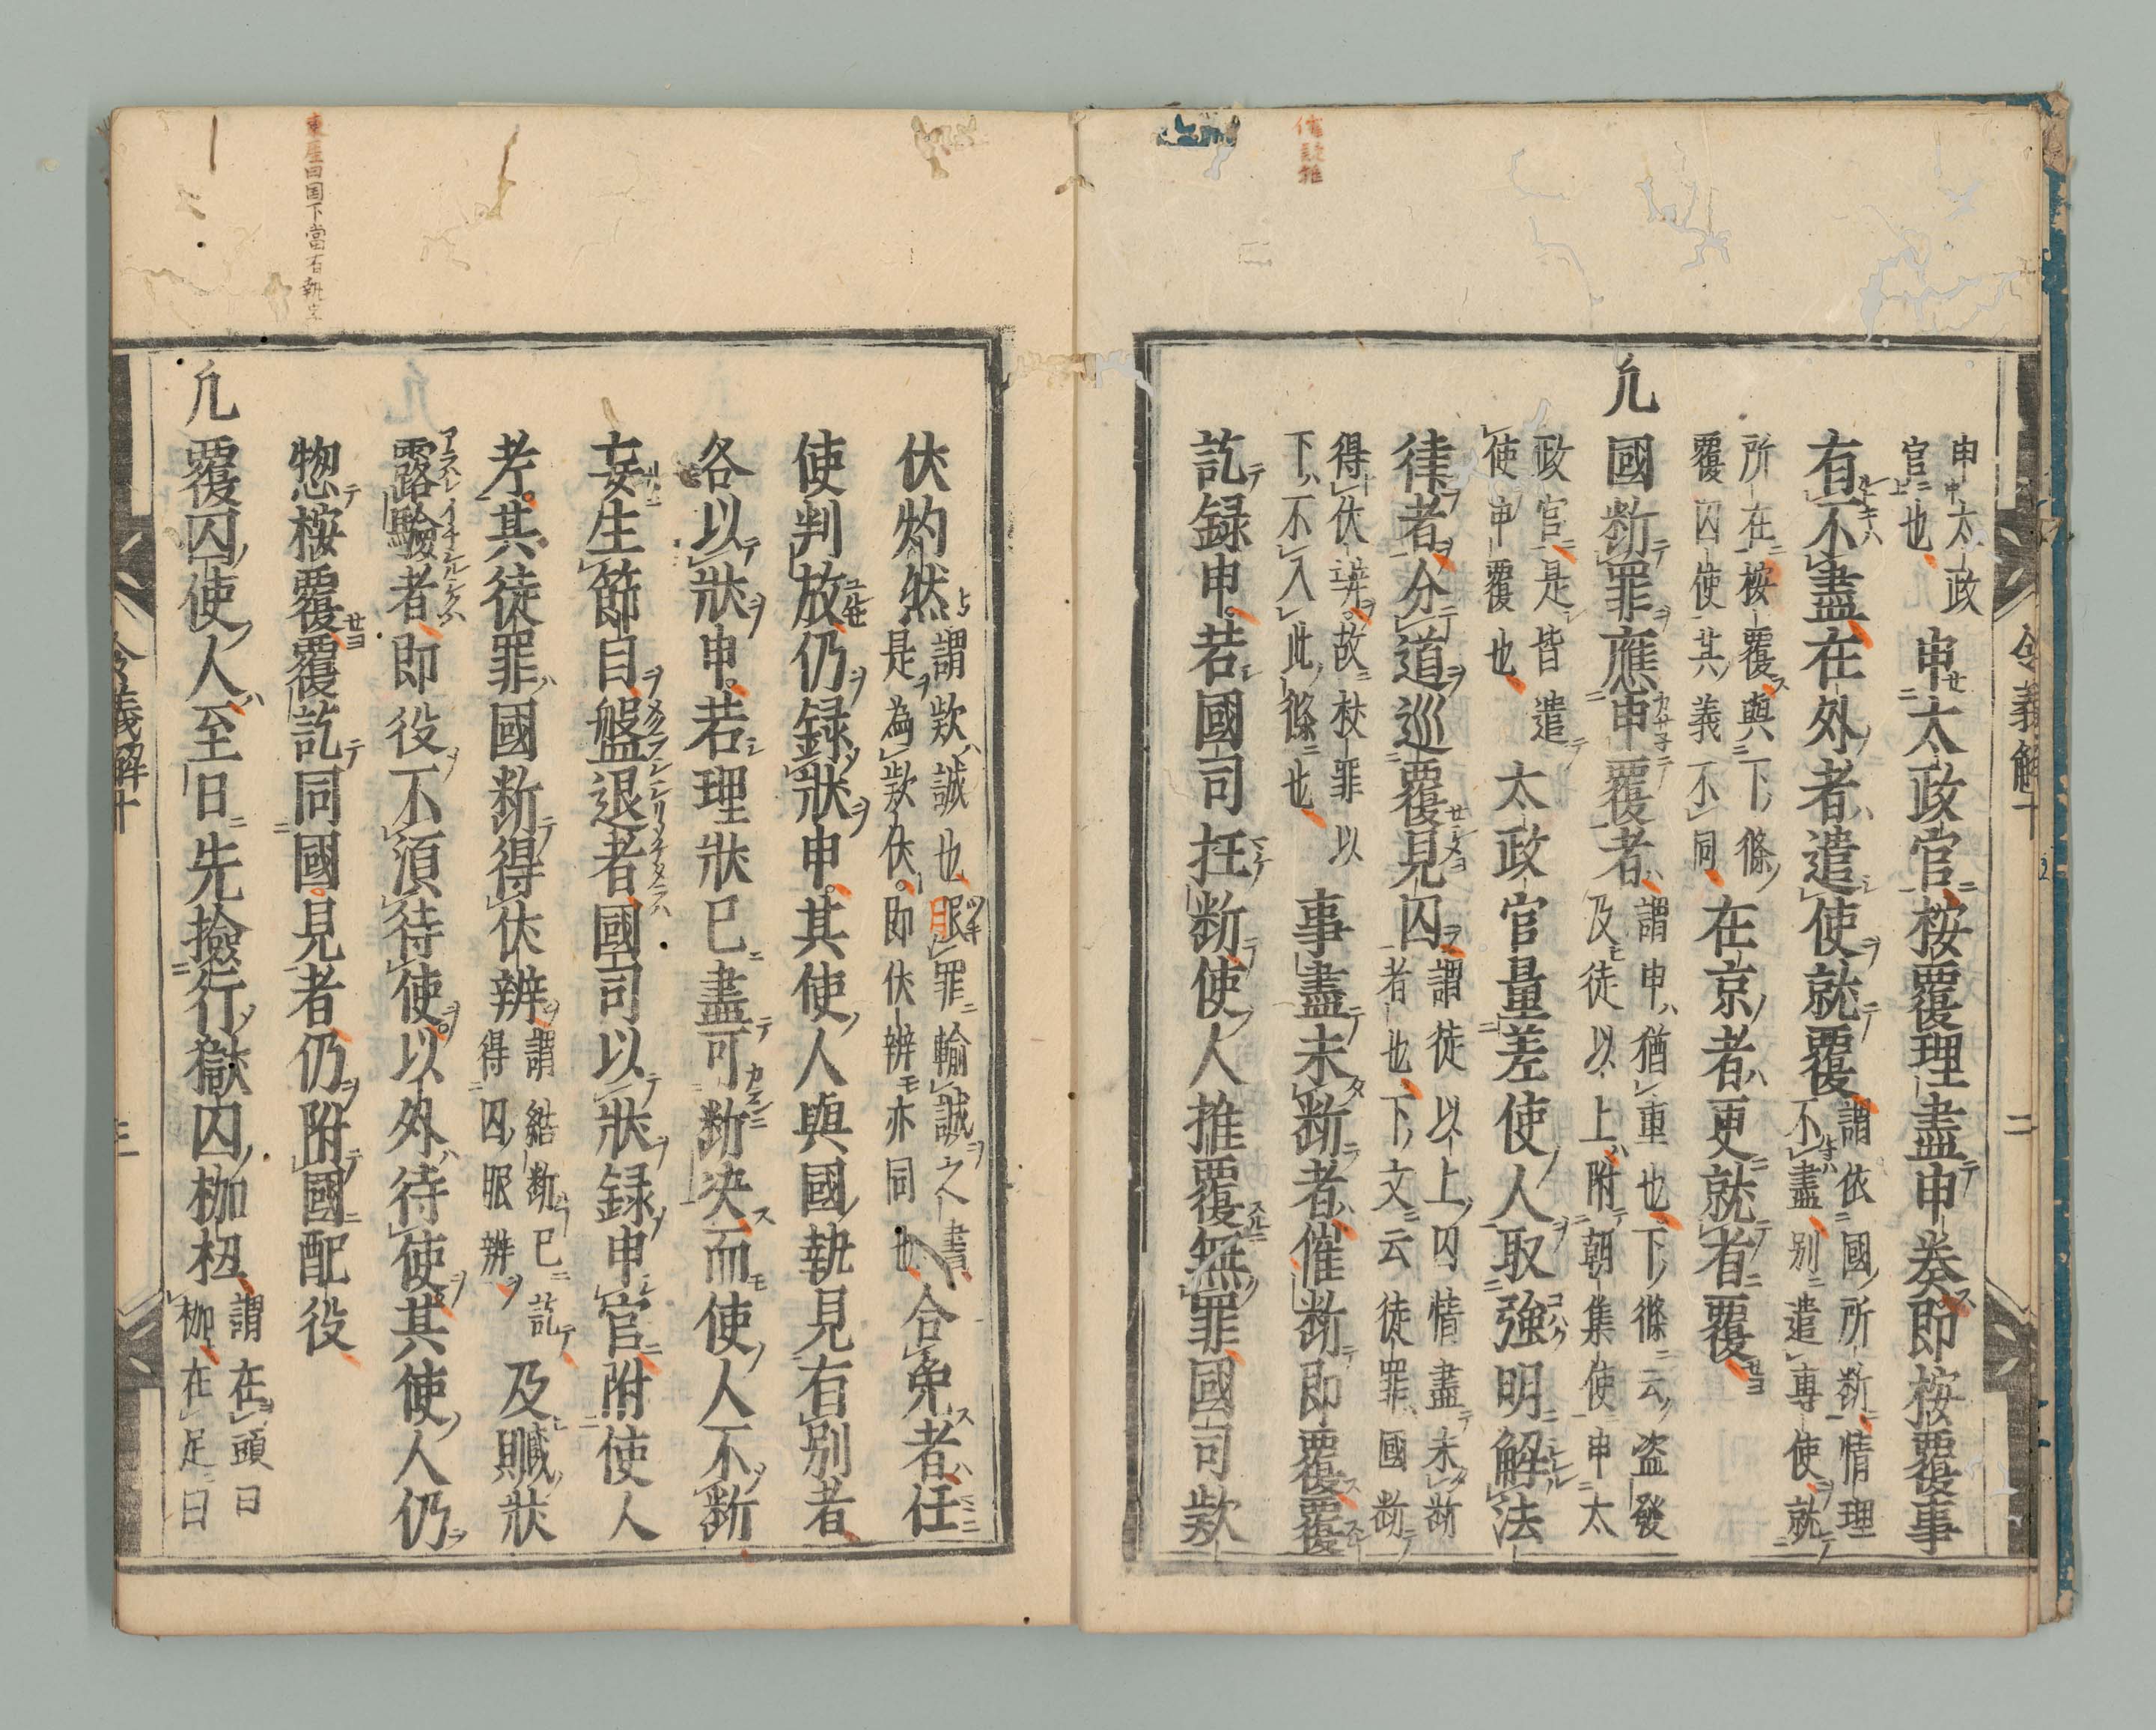 申太政
官也
申太政官按覆理盡申奏即按覆事
有不盡在外者遣使就覆
謂依國所斷情理
不盡別遣專使就
所在按覆與下條
覆囚使其義不同
在京者更就省覆
凢國斷罪應申覆者
謂申猶重也下條云盗發
及徒以上附朝集使申太
政官是皆遣
使申覆也
太政官量差使人取強明解法
律者分道巡覆見囚
謂徒以上囚情盡未斷
者也下文云徒罪國斷
得伏辨故杖罪以
下不入此條也
事盡未斷者催斷即覆覆
訖録申若國司抂斷使人推覆無罪國司欵
伏灼然
謂欵誠也眼罪輸誠之書
是為欵伏即伏辨亦同也
合免者任
使判放仍録狀申其使人與國執見有別者
各以狀申若理狀已盡可斷决而使人不斷
妄生節目盤退者國司以狀録申官附使人
考其徒罪國斷得伏辨
謂結斷已訖
得囚服辨
及贓狀
露驗者即役不湏待使以外待使其使人仍
惣按覆覆訖同國見者仍附國配役
凢覆囚使人至日先撿行獄囚枷杻
謂在頭曰
枷在足曰
令義解十
二
令義解十
三